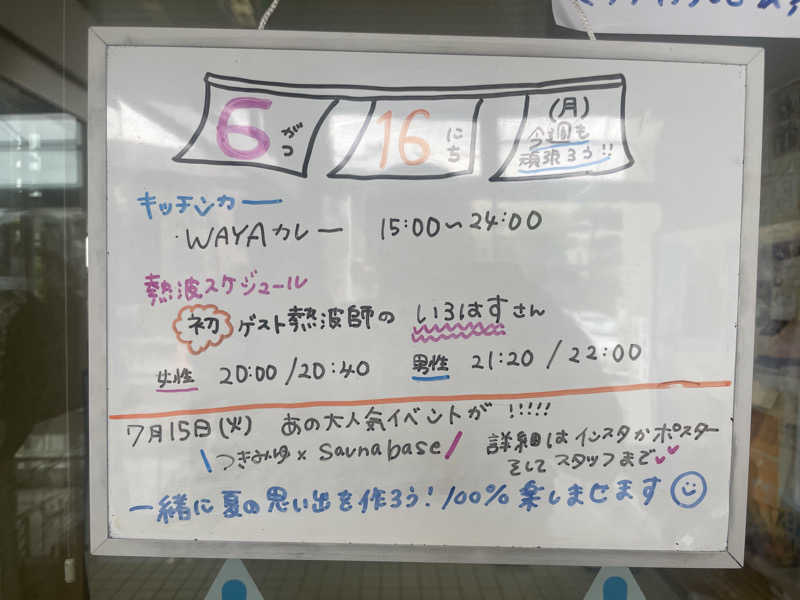 6 がつ 16 にち (月) 今週も頑張ろう!!
キッチンカー
・WAYAカレー 15:00~24:00
熱波スケジュール
初 ゲスト熱波師の いろはすさん
女性 20:00/20:40 男性 21:20/22:00
7月15日(火) あの大人気イベントが!!!!!
\つきみゆ×Saunabase/ 詳細はインスタかポスター
そしてスタッフまで♥♥
一緒に夏の思い出を作ろう!100%楽しませます☺